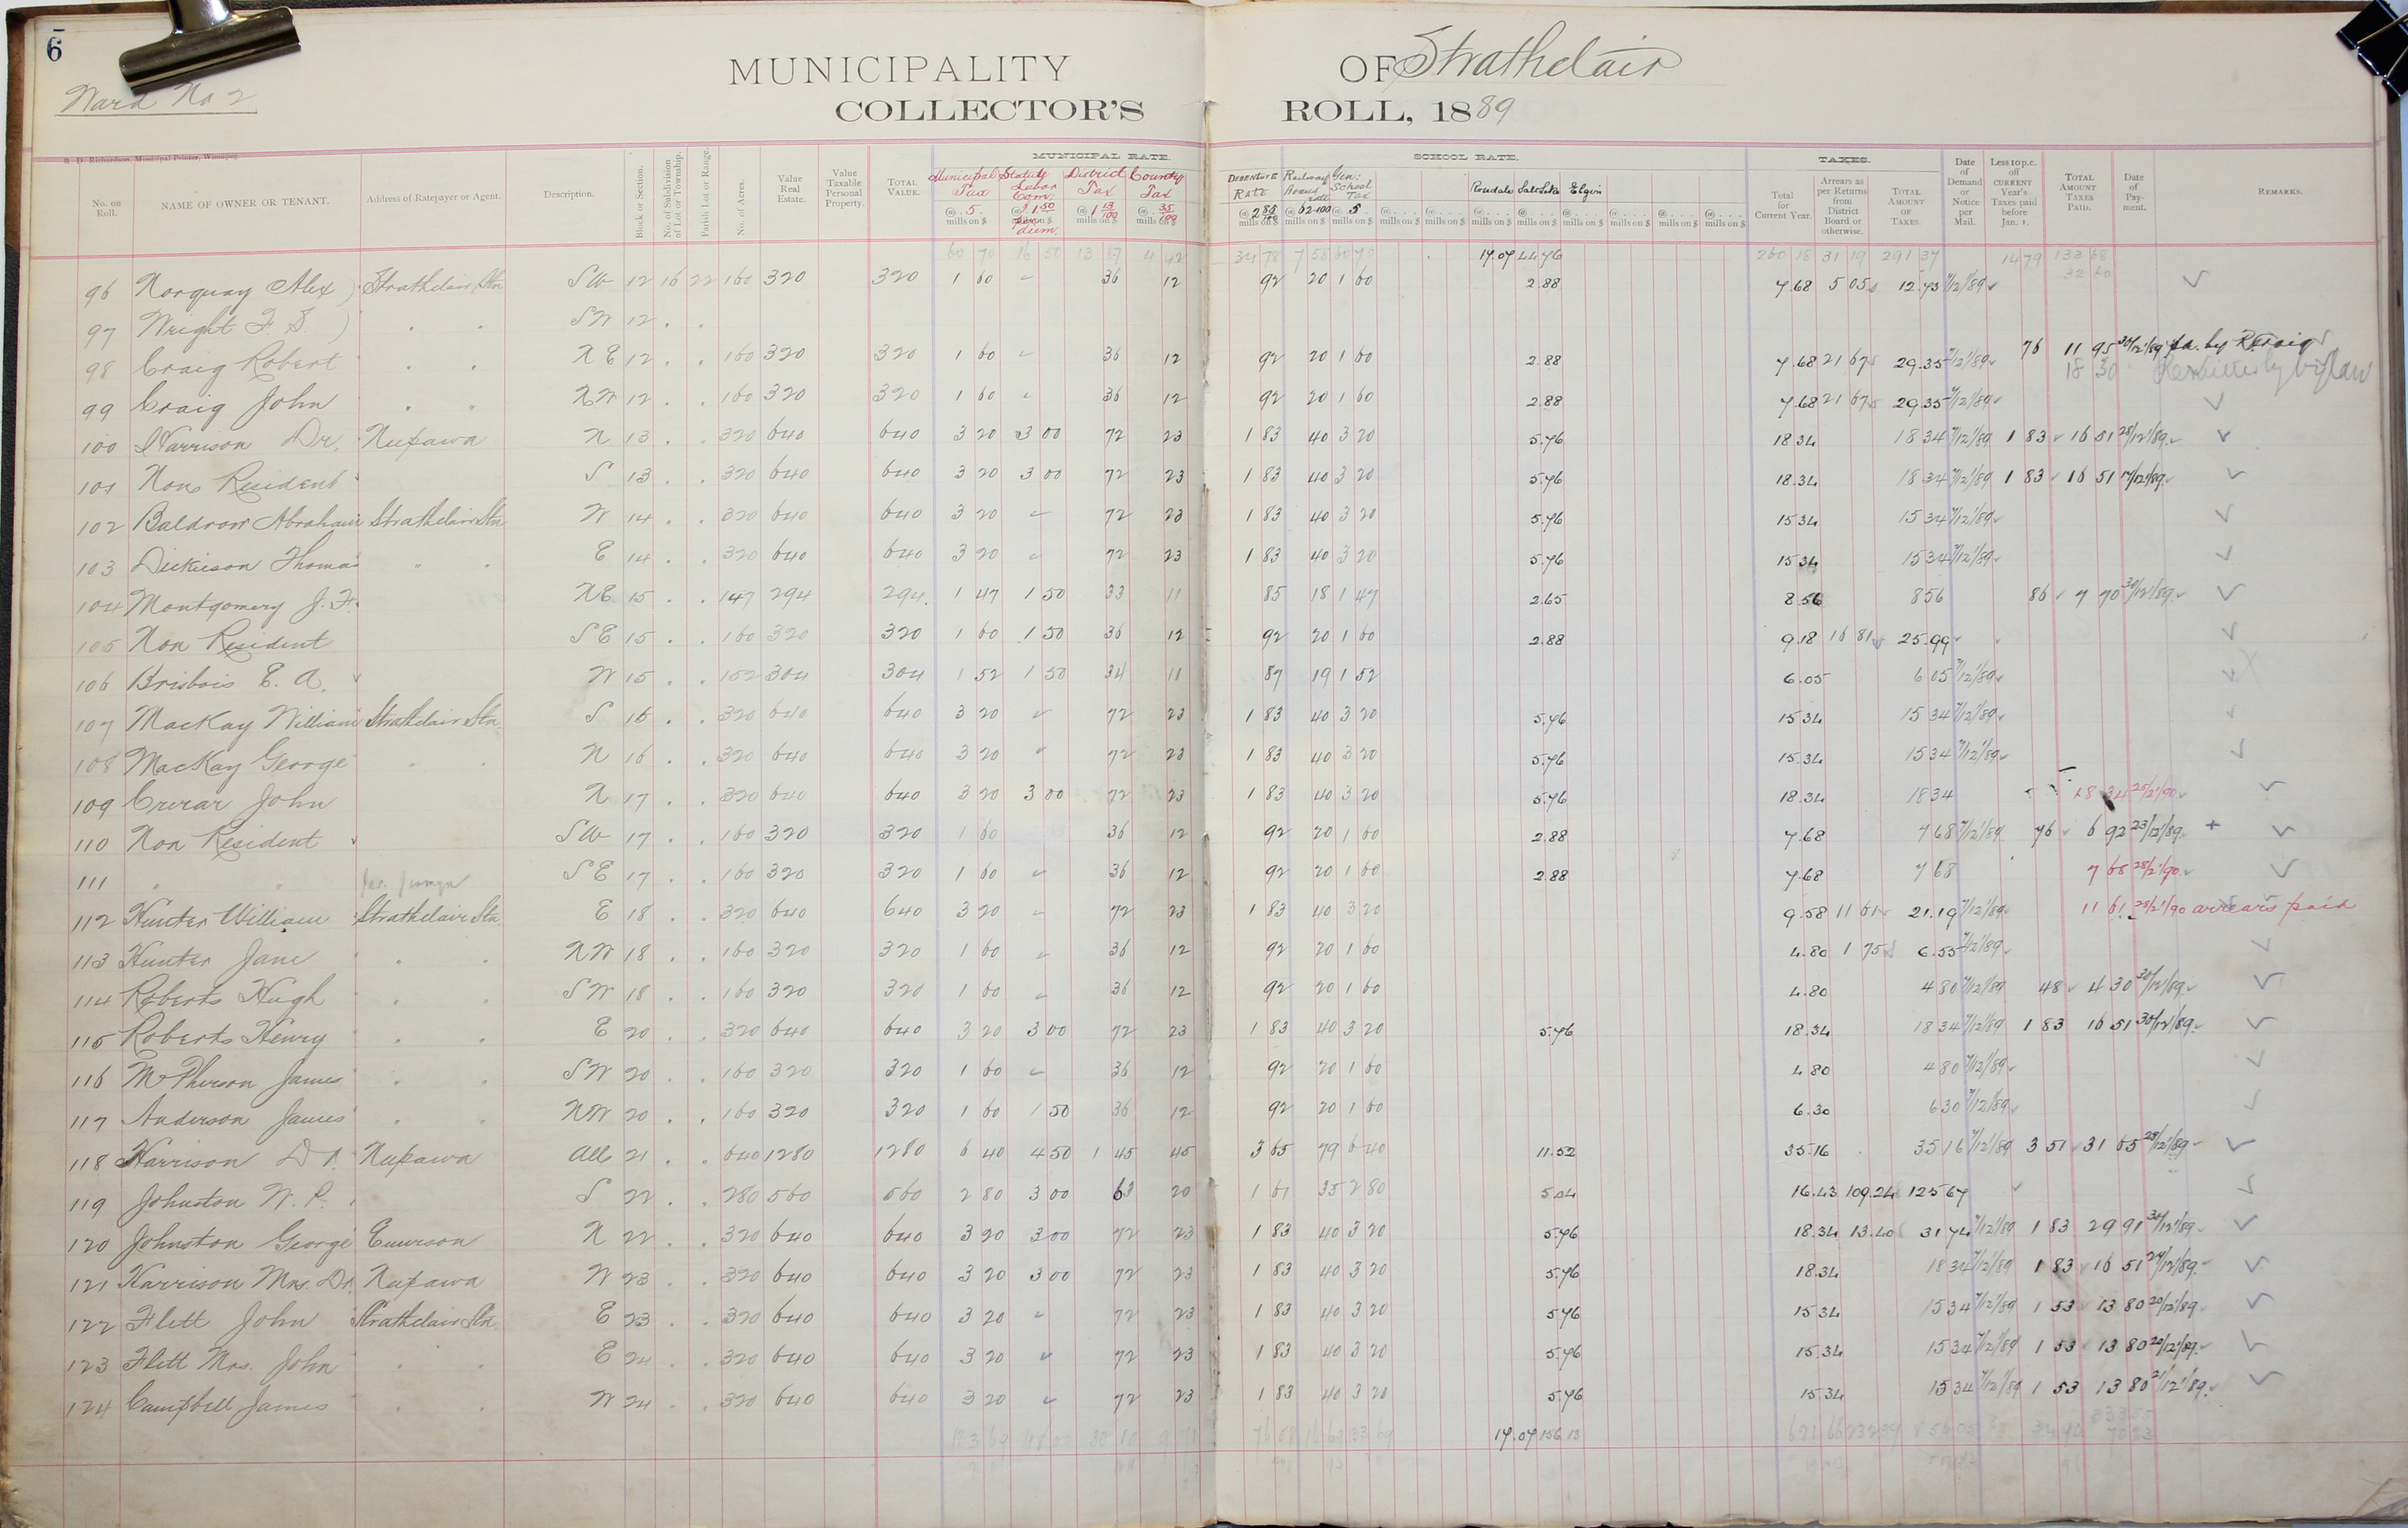 6
Ward No 2
MUNICIPALITY OF Strathclair
COLLECTOR'S ROLL, 1889
R. D. Richardson, Municipal Printer, Winnipeg.
MUNICIPAL RATE. SCHOOL RATE. TAXES.
No. on Roll. NAME OF OWNER OR TENANT. Address of Ratepayer or Agent. Description. Block or Section. No. of Subdivision of Lot or Township. Parish Lot or Range. No. of Acres. Value Real Estate. Value Taxable Personal Property. TOTAL VALUE. Municipal Tax @ .5. mills on $ Statute Labor Com: @ $1.50 per diem District Tax @ 1 13/100 mills on $ County Tax @ 35/100 mills on $ DEBENTURE RATE @ 2 85/100 mills on $ Railway Gen: School Tax @ .5. mills on $ Rosedale Salt Lake Elgin Total for Current Year. Arrears as per Returns from District Board or otherwise. TOTAL AMOUNT OF TAXES. Date of Demand or Notice per Mail. Less 10 p.c. off CURRENT Year's Taxes paid before Jan. 1. TOTAL AMOUNT TAXES PAID. Date of Payment. REMARKS.
60 70 16 50 13 67 4 42 34 78 7 58 60 70 17.07 44 76 260 18 31 19 291 37 14 79 133 68
32 60
96 Norquay Alex) Strathclair Stn SW 12 16 22 160 320 320 1 60 " 36 12 92 20 1 60 2.88 7.68 5 05 12.73 7/12/89
97 Wright F. S. ) " " SW 12 . .
98 Craig Robert " " NE 12 . . 160 320 320 1 60 " 36 12 92 20 1 60 2.88 7.68 21 67 29.35 7/12/89 76 11 95 30/12/89 pd. by R Craig
18 30 Remitted by bylaw
99 Craig John " " NW 12 . . 160 320 320 1 60 " 36 12 92 20 1 60 2.88 7.68 21 67 29.35 7/12/89
100 Harrison Dr. Nepawa N 13 . . 320 640 640 3 20 3 00 72 23 1 83 40 3 20 5.76 18 34 18 34 7/12/89 1 83 16 51 28/12/89
101 Non Resident S 13 . . 320 640 640 3 20 3 00 72 23 1 83 40 3 20 5.76 18.34 18 34 7/12/89 1 83 16 51 17/12/89
102 Baldrow Abraham Strathclair Stn W 14 . . 320 640 640 3 20 " 72 23 1 83 40 3 20 5.76 15 34 15 34 7/12/89
103 Dickieson Thomas " " E 14 . . 320 640 640 3 20 " 72 23 1 83 40 3 20 5.76 15 34 15 34 7/12/89
104 Montgomery J. F. NE 15 . . 147 294 294 1 47 1 50 33 11 85 18 1 47 2.65 8 56 8 56 86 7 70 30/12/89
105 Non Resident SE 15 . . 160 320 320 1 60 1 50 36 12 92 20 1 60 2.88 9.18 16 81 25.99
106 Brisbois E. A. W 15 . . 152 304 304 1 52 1 50 34 11 87 19 1 52 6.05 6 05 7/12/89
107 MacKay William Strathclair Stn. S 16 . . 320 640 640 3 20 " 72 23 1 83 40 3 20 5.76 15 34 15 34 7/12/89
108 MacKay George " " N 16 . . 320 640 640 3 20 " 72 23 1 83 40 3 20 5.76 15.34 15 34 7/12/89
109 Crerar John N 17 . . 320 640 640 3 20 3 00 72 23 1 83 40 3 20 5.76 18.34 18 34 18 34 25/2/90
110 Non Resident SW 17 . . 160 320 320 1 60 36 12 92 20 1 60 2.88 7.68 7 68 7/12/89 76 6 92 23/12/89 +
111 " " SE 17 . . 160 320 320 1 60 " 36 12 92 20 1 60 2.88 7.68 7 68 7 68 28/2/90
112 Hunter William Strathclair Stn. E 18 . . 320 640 640 3 20 " 72 23 1 83 40 3 20 9.58 11 61 21.19 7/12/89 11 61 28/2/90 arrears paid
113 Hunter Jane " " NW 18 . . 160 320 320 1 60 " 36 12 92 20 1 60 4.80 1 75 6.55 7/12/89
114 Roberts Hugh " " SW 18 . . 160 320 320 1 60 " 36 12 92 20 1 60 4.80 4 80 7/12/89 48 4 30 30/12/89
115 Roberts Henry " " E 20 . . 320 640 640 3 20 3 00 72 23 1 83 40 3 20 5.76 18.34 18 34 7/12/89 1 83 16 51 30/12/89
116 McPherson James " " SW 20 . . 160 320 320 1 60 " 36 12 92 20 1 60 4 80 4 80 7/12/89
117 Anderson James " " NW 20 . . 160 320 320 1 60 1 50 36 12 92 20 1 60 6.30 6 30 7/12/89
118 Harrison Dr. Nepawa All 21 . . 640 1280 1280 6 40 4 50 1 45 45 3 65 79 6 40 11.52 35.16 35 16 7/12/89 3 51 31 65 28/12/89
119 Johnston W. P. S 22 . . 280 560 560 2 80 3 00 63 20 1 61 35 2 80 5.04 16.43 109.24 125 67
120 Johnston George Emerson N 22 . . 320 640 640 3 20 3 00 72 23 1 83 40 3 20 5.76 18.34 13.40 31 74 7/12/89 1 83 29 91 31/12/89
121 Harrison Mrs. Dr. Nepawa W 23 . . 320 640 640 3 20 3 00 72 23 1 83 40 3 20 5.76 18.34 18 34 7/12/89 1 83 16 51 24/12/89
122 Flett John Strathclair Stn. E 23 . . 320 640 640 3 20 " 72 23 1 83 40 3 20 5.76 15 34 15 34 7/12/89 1 53 13 80 20/12/89
123 Flett Mrs. John " " E 24 . . 320 640 640 3 20 " 72 23 1 83 40 3 20 5.76 15.34 15 34 7/12/89 1 53 13 80 20/12/89
124 Campbell James " " W 24 . . 320 640 640 3 20 " 72 23 1 83 40 3 20 5.76 15 34 15 34 7/12/89 1 53 13 80 21/12/89
17.07 156 13